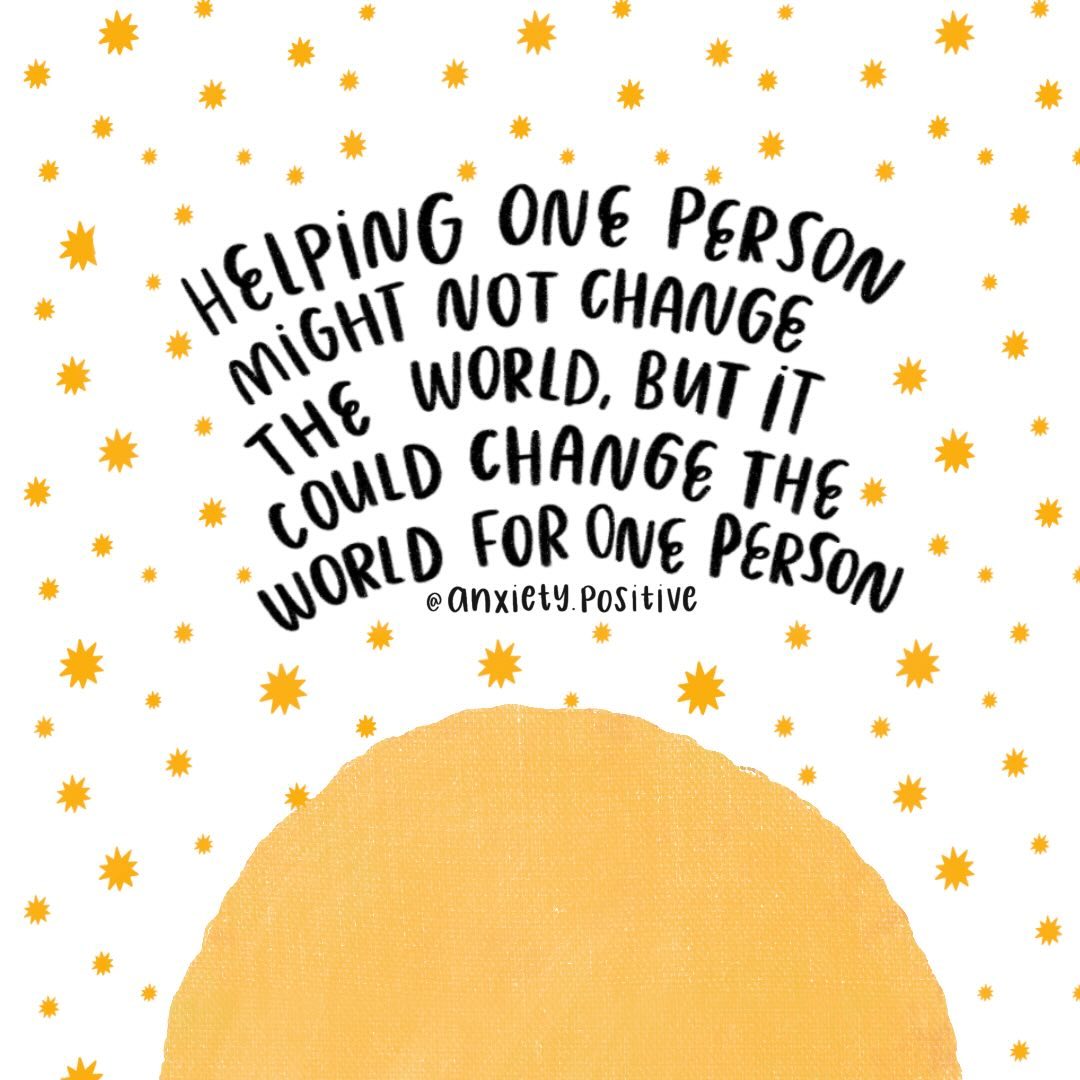 HELPING ONE PERSON
MIGHT NOT CHANGE
THE WORLD, BUT IT
COULD CHANGE THE
WORLD FOR ONE PERSON
@anxiety.positive